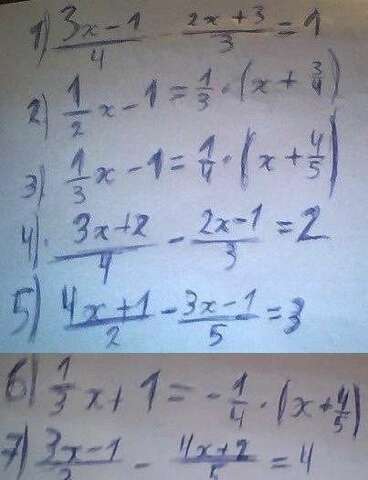 1) (3x-1)/4   (2x+3)/3 = 1
2) 1/2 x - 1 = 1/3 · (x + 3/4)
3) 1/3 x - 1 = 1/4 · (x + 4/5)
4) · (3x+2)/4 - (2x-1)/3 = 2
5) (4x+1)/2 - (3x-1)/5 = 3
6) 1/3 x + 1 = - 1/4 · (x + 4/5)
7) (3x-1)/2 - (4x+2)/5 = 4